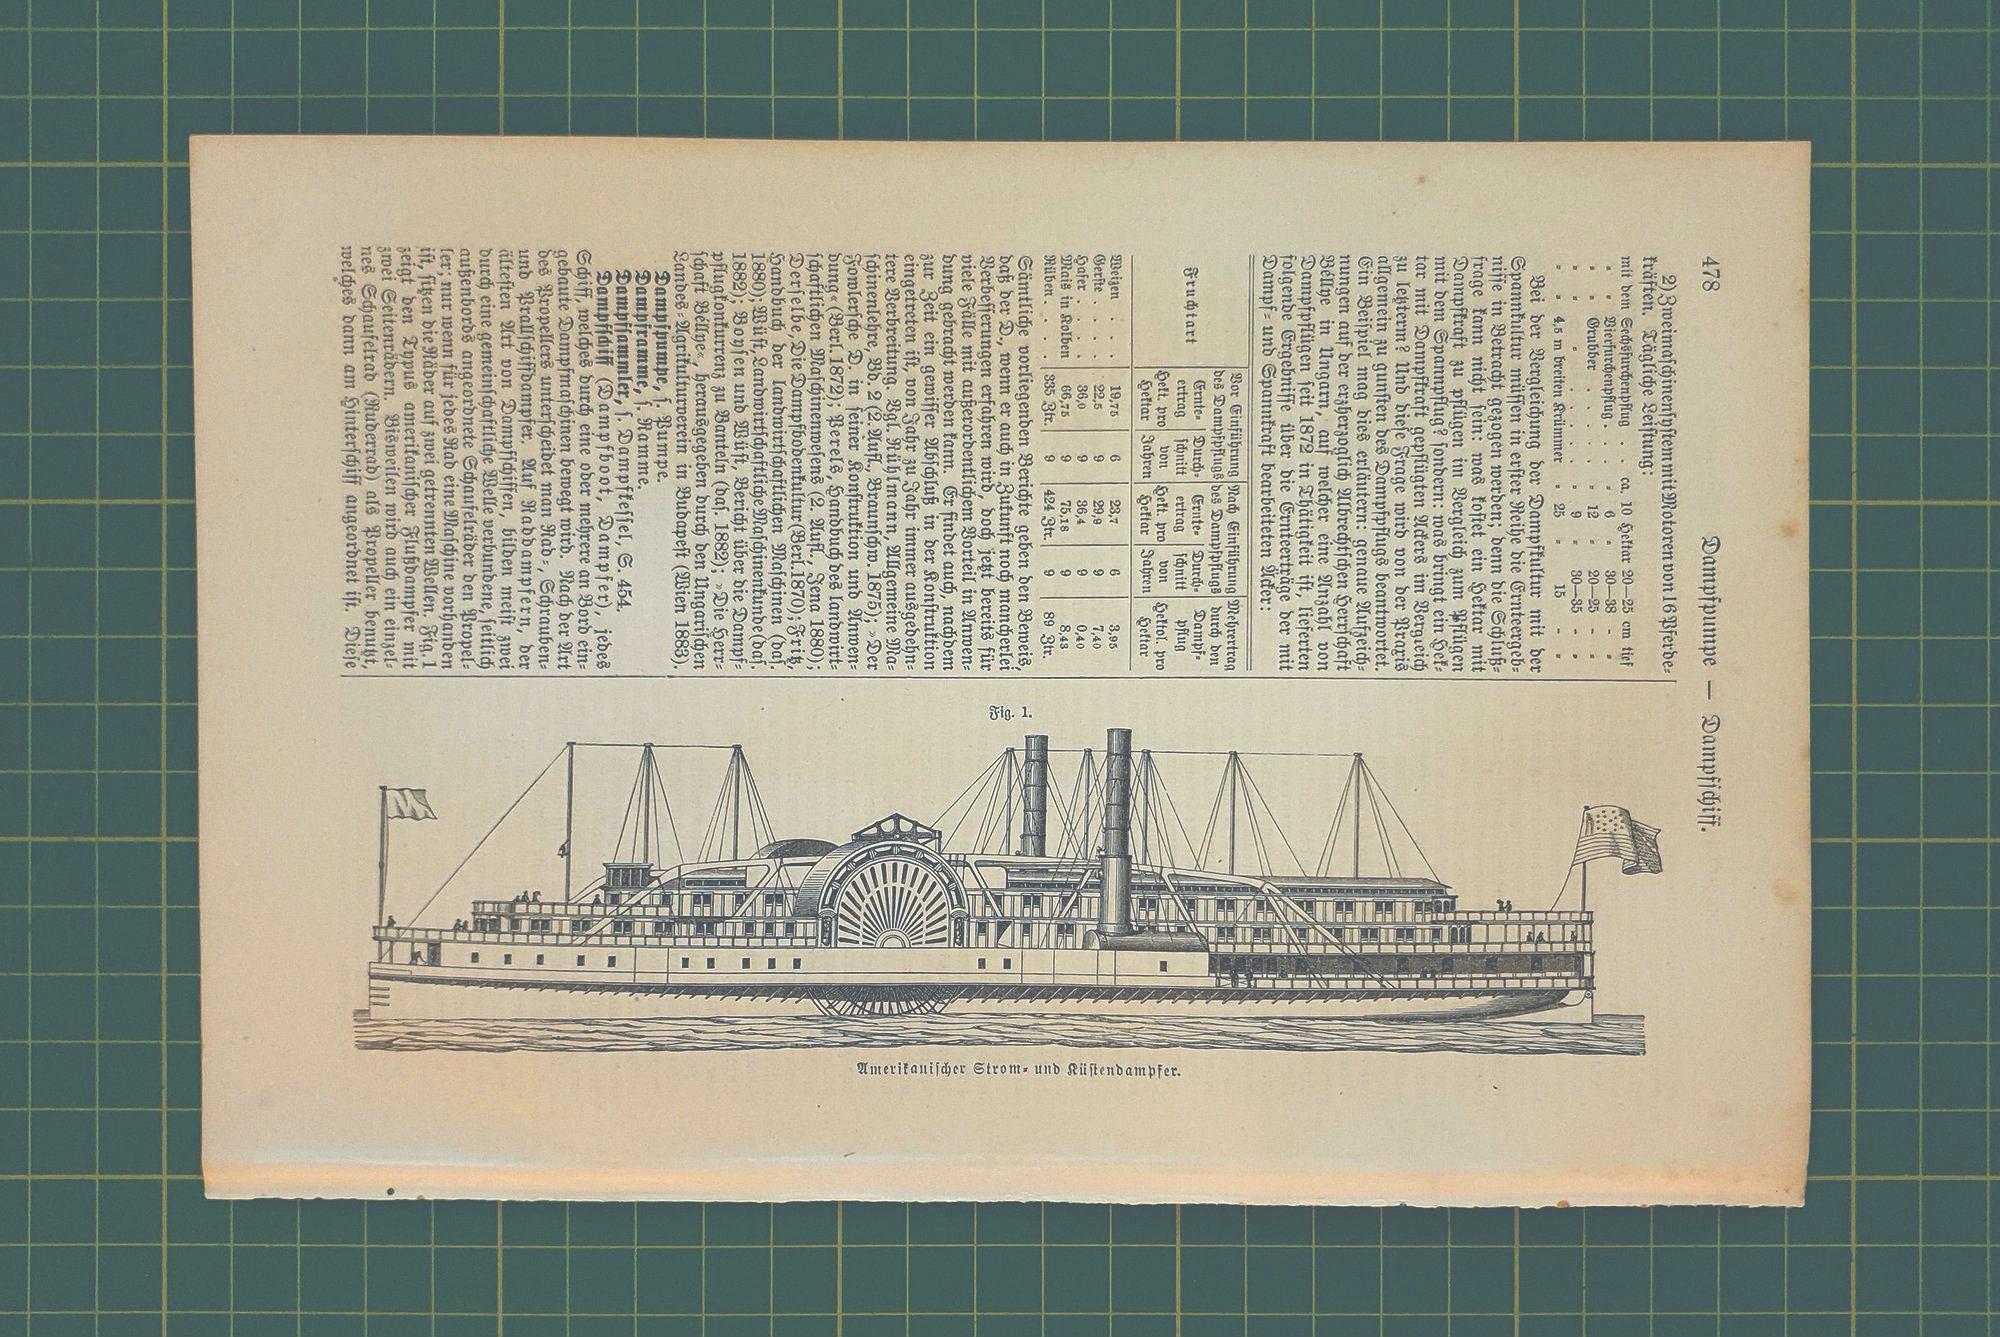 478
Dampfpumpe — Dampfschiff.
2) Zweimaschinensystem mit Motoren von 16 Pferde-
kräften. Tägliche Leistung:
mit dem Sechsfurchenpflug . . ca. 10 Hektar 20–25 cm tief
" " Vierfurchenpflug . . . " 6 " 30–38 " "
" " Grubber . . . . . " 12 " 20–25 " "
" " . . . . . " 9 " 30–35 " "
" " 4,5 m breiten Krümmer " 25 " 15 " "
Bei der Vergleichung der Dampfkultur mit der
Spannkultur müssen in erster Reihe die Ernteergeb-
nisse in Betracht gezogen werden; denn die Schluß-
frage kann nicht sein: was kostet ein Hektar mit
Dampfkraft zu pflügen im Vergleich zum Pflügen
mit dem Spannpflug? sondern: was bringt ein Hek-
tar mit Dampfkraft gepflügten Ackers im Vergleich
zu letzterm? Und diese Frage wird von der Praxis
allgemein zu gunsten des Dampfpflugs beantwortet.
Ein Beispiel mag dies erläutern: genaue Aufzeich-
nungen auf der erzherzoglich Albrechtschen Herrschaft
Béllye in Ungarn, auf welcher eine Anzahl von
Dampfpflügen seit 1872 in Thätigkeit ist, lieferten
folgende Ergebnisse über die Ernteerträge der mit
Dampf- und Spannkraft bearbeiteten Äcker:
Fruchtart
Vor Einführung des Dampfpflugs
Nach Einführung des Dampfpflugs
Mehrertrag durch den Dampf-pflug Hektol. pro Hektar
Ernte-ertrag Hekt. pro Hektar
Durch-schnitt von Jahren
Ernte-ertrag Hekt. pro Hektar
Durch-schnitt von Jahren
Weizen . . . 19,75 6 23,7 6 3,95
Gerste . . . 22,5 9 29,9 9 7,40
Hafer . . . 36,0 9 36,4 9 0,40
Mais in Kolben 66,75 9 75,18 9 8,43
Rüben . . . 335 Ztr. 9 424 Ztr. 9 89 Ztr.
Sämtliche vorliegenden Berichte geben den Beweis,
daß der D., wenn er auch in Zukunft noch mancherlei
Verbesserungen erfahren wird, doch jetzt bereits für
viele Fälle mit außerordentlichem Vorteil in Anwen-
dung gebracht werden kann. Er findet auch, nachdem
zur Zeit ein gewisser Abschluß in der Konstruktion
eingetreten ist, von Jahr zu Jahr immer ausgedehn-
tere Verbreitung. Vgl. Rühlmann, Allgemeine Ma-
schinenlehre, Bd. 2 (2. Aufl., Braunschw. 1875); »Der
Fowlersche D. in seiner Konstruktion und Anwen-
dung« (Berl. 1872); Perels, Handbuch des landwirt-
schaftlichen Maschinenwesens (2. Aufl., Jena 1880);
Derselbe, Die Dampfbodenkultur (Berl. 1870); Fritz,
Handbuch der landwirtschaftlichen Maschinen (das.
1880); Wüst, Landwirtschaftliche Maschinenkunde (das.
1882); Boysen und Wüst, Bericht über die Dampf-
pflugkonkurrenz zu Banteln (das. 1882); »Die Herr-
schaft Béllye«, herausgegeben durch den Ungarischen
Landes-Agrikulturverein in Budapest (Wien 1883).
Dampfpumpe, s. Pumpe.
Dampframme, s. Ramme.
Dampfsammler, s. Dampfkessel, S. 454.
Dampfschiff (Dampfboot, Dampfer), jedes
Schiff, welches durch eine oder mehrere an Bord ein-
gebaute Dampfmaschinen bewegt wird. Nach der Art
des Propellers unterscheidet man Rad-, Schrauben-
und Prallschiffdampfer. Auf Raddampfern, der
ältesten Art von Dampfschiffen, bilden meist zwei
durch eine gemeinschaftliche Welle verbundene, seitlich
außenbords angeordnete Schaufelräder den Propel-
ler; nur wenn für jedes Rad eine Maschine vorhanden
ist, sitzen die Räder auf zwei getrennten Wellen. Fig. 1
zeigt den Typus amerikanischer Flußdampfer mit
zwei Seitenrädern. Bisweilen wird auch ein einzel-
nes Schaufelrad (Ruderrad) als Propeller benutzt,
welches dann am Hinterschiff angeordnet ist. Diese
Fig. 1.
Amerikanischer Strom- und Küstendampfer.